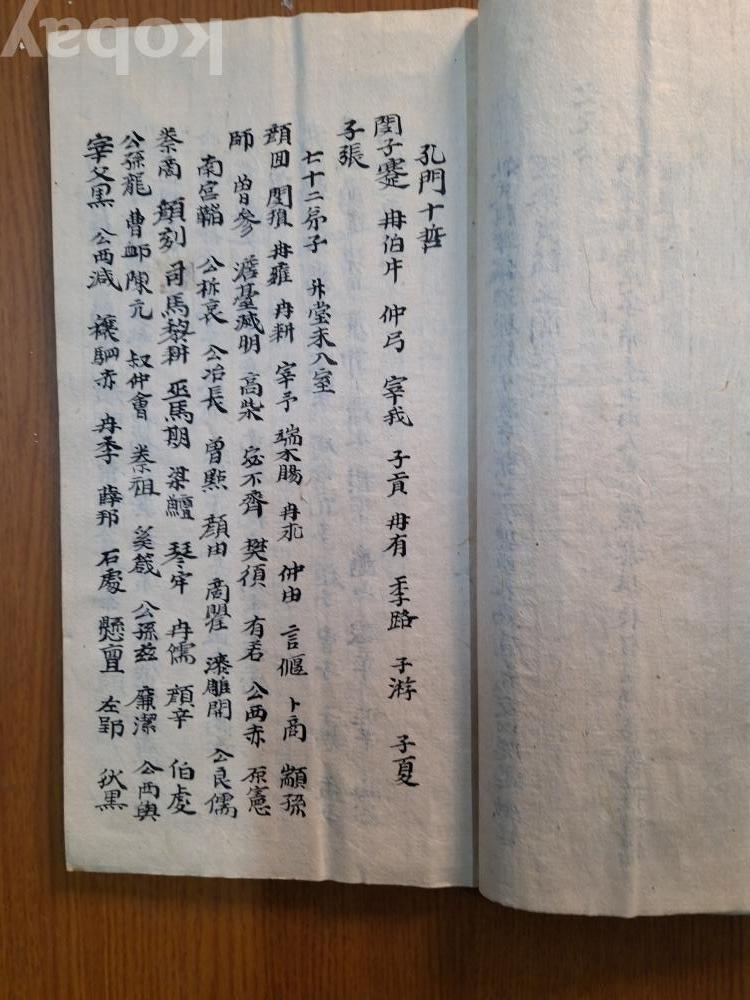 孔門十哲
閔子蹇 冉伯牛 仲弓 宰我 子貢 冉有 季路 子游 子夏
子張
七十二弟子 升堂未入室
顔回 閔損 冉雍 冉耕 宰予 端木賜 冉求 仲由 言偃 卜商 顓孫
師 曾參 澹臺滅明 高柴 宓不齊 樊須 有若 公西赤 原憲
南宮韜 公析哀 公冶長 曾點 顔由 商瞿 漆雕開 公良儒
秦商 顔刻 司馬黎耕 巫馬期 梁鱣 琴牢 冉儒 顔辛 伯虔
公孫龍 曹卹 陳亢 叔仲會 秦祖 奚箴 公孫玆 廉潔 公西輿
宰父黑 公西減 穰駟赤 冉季 薛邦 石處 懸亶 左郢 狄黑
kobay